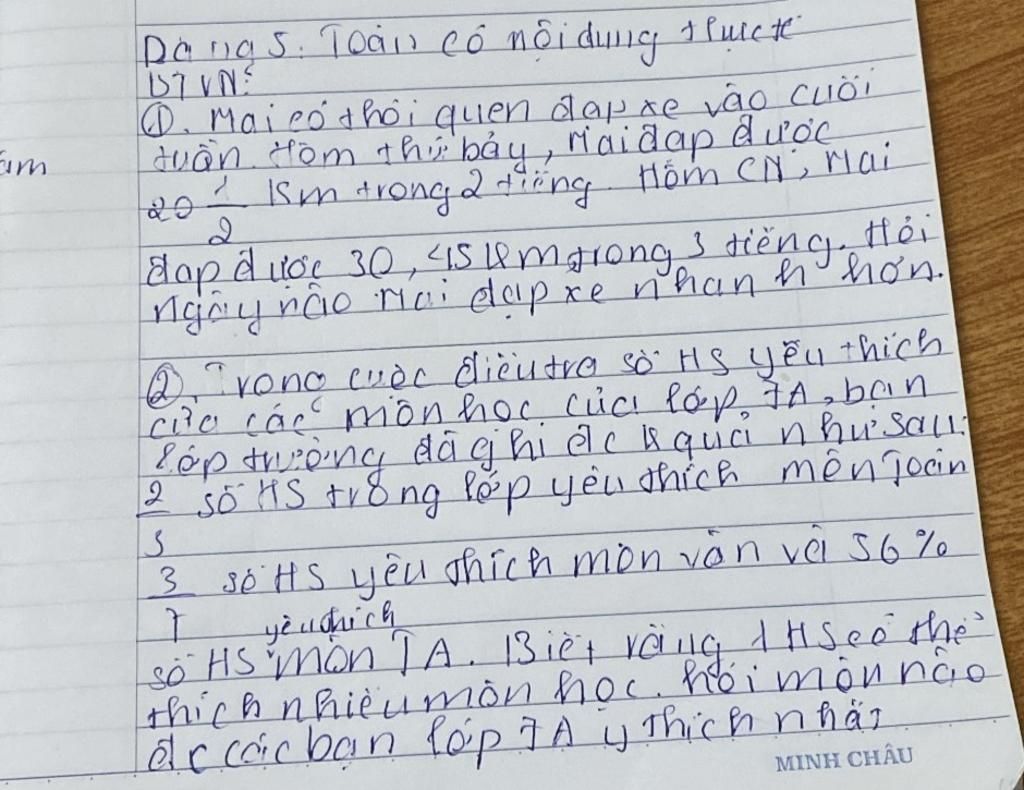 Dạng 5. Toán có nội dung thực tế
BTVN:
①. Mai có thói quen đạp xe vào cuối
tuần. Hôm thứ bảy, Mai đạp được
20 1/2 km trong 2 tiếng. Hôm CN, Mai
đạp được 30,45 km trong 3 tiếng. Hỏi
ngày nào Mai đạp xe nhanh hơn.
②. Trong cuộc điều tra số HS yêu thích
của các môn học của lớp 7A, bạn
lớp trưởng đã ghi đc k quả như sau:
2/5 số HS trong lớp yêu thích môn Toán
3/7 số HS yêu thích môn văn và 56%
yêu thích
số HS môn TA. Biết rằng 1 HS có thể
thích nhiều môn học. hỏi môn nào
đc các bạn lớp 7A y thích nhất
MINH CHÂU